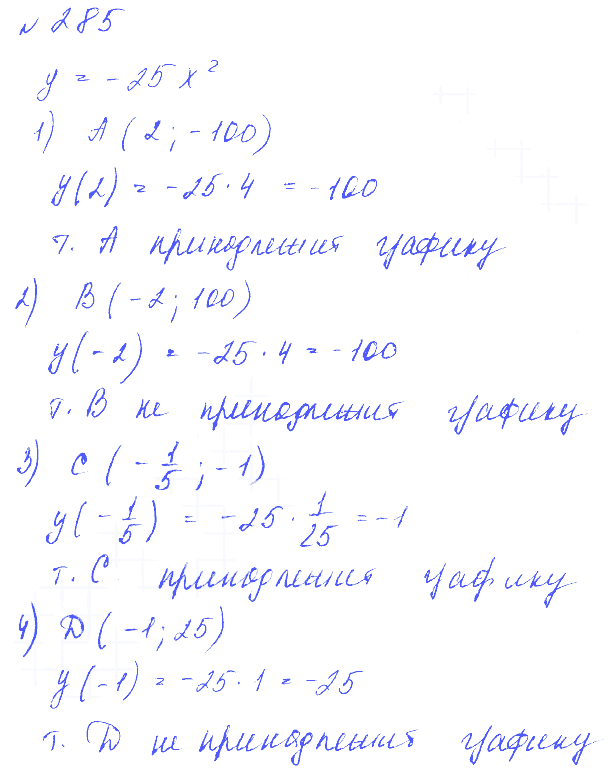 № 285
y = -25x²
1) A (2; -100)
y(2) = -25 · 4 = -100
т. А принадлежит графику
2) B (-2; 100)
y(-2) = -25 · 4 = -100
т. В не принадлежит графику
3) C (-1/5; -1)
y(-1/5) = -25 · 1/25 = -1
т. С принадлежит графику
4) D (-1; 25)
y(-1) = -25 · 1 = -25
т. D не принадлежит графику